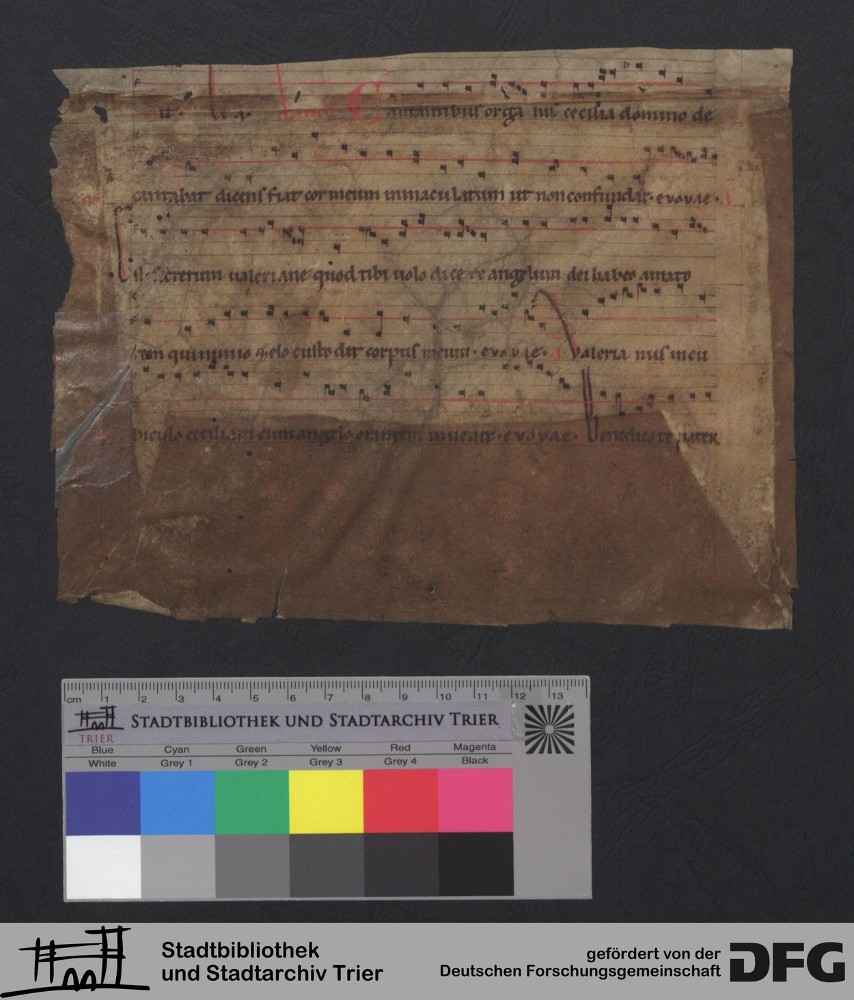 C antantibus orga nis cecilia domino de
cantabat dicens fiat cor meum inmaculatum ut non confundar · evovae ·
cretum valeriane quod tibi volo dicere angelum dei habeo amato
rem qui nimio zelo custodit corpus meum · evovae · Valeria nus in cu
biculo ceciliam cum angelo orantem invenit · evovae · Benedico te pater
cm 1 2 3 4 5 6 7 8 9 10 11 12 13
TRIER
Stadtbibliothek und Stadtarchiv Trier
Blue Cyan Green Yellow Red Magenta
White Grey 1 Grey 2 Grey 3 Grey 4 Black
Stadtbibliothek
und Stadtarchiv Trier
gefördert von der
Deutschen Forschungsgemeinschaft
DFG